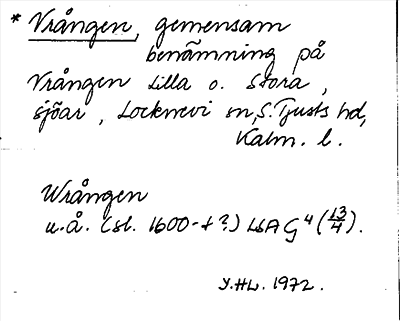 * Vrången, gemensam
benämning på
Vrången Lilla o. Stora,
sjöar, Locknevi sn, S. Tjusts hd,
Kalm. l.
Wrången
u.å. (sl. 1600-t?) LSA G⁴ (13/4).
Y.HL. 1972.